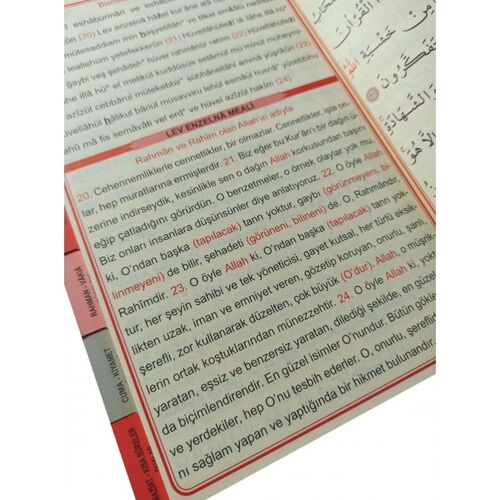 Bismi
eshâbünnâri ve eshâbül
(20) Lev enzelnâ hâzel kur'âne alâ
mütesaddiam min haşyetillâh* ve tilkel emsâlü nadribühâ
leallehüm yetefekkerûn (21) Hüvellâhüllezî lâ ilâhe illâ
gaybi veş şehâdeh* hüver rahmânür rahîm (22) Hüvellâhüllezî
ilâhe illâ hû* el melikül kuddûsüs selâmül mü'minül müheymi
azîzül cebbârul mütekebbir* sübhânellâhi ammâ yüşrikûn (23)
Hüvellâhül hâlikul bâriül musavviru lehül esmâül husnâ* yüsebbihu
lehû mâ fis semâvâti vel ard* ve hüvel azîzül hakîm (24)
LEV ENZELNÂ MEALİ
Rahmân ve Rahîm olan Allah'ın adıyla
20. Cehennemliklerle cennetlikler bir olmazlar. Cennetlikler, işte on-
lar, hep muratlarına ermişlerdir. 21. Biz eğer bu Kur'ân'ı bir dağın ü-
zerine indirseydik, kesinlikle sen o dağın Allah korkusundan başını
eğip çatladığını görürdün. O benzetmeler, o örnek olaylar yok mu,
Biz onları insanlara düşünsünler diye anlatıyoruz. 22. O öyle Allah
ki, O'ndan başka (tapılacak) tanrı yoktur, gaybı (görünmeyeni, bi-
linmeyeni) de bilir, şehadeti (görüneni, bilineni) de. O, Rahmândır,
Rahîmdir. 23. O öyle Allah ki, O'ndan başka (tapılacak) tanrı yok-
tur, her şeyin sahibi ve tek yöneticisi, gayet kutsal, her türlü eksik-
likten uzak, iman ve emniyet veren, gözetip koruyan, onurlu, şanlı
şerefli, zor kullanarak düzelten, çok büyük (O'dur), Allah, o müşrik-
lerin ortak koştuklarından münezzehtir. 24. O öyle Allah ki, yoktan
yaratan, eşsiz ve benzersiz yaratan, dilediği şekilde, en güzel
da biçimlendirendir. En güzel isimler O'nundur. Bütün gökler
ve yerdekiler, hep O'nu tesbih ederler. O, onurlu, şerefli
nı sağlam yapan ve yaptığında bir hikmet bulunandır.
RAHMAN - VAKIA
CUMA - KIYAMET
NAZİAT - KISA SÛRELER
الْقُرْآنَ
مِنْ خَشْيَةِ
يَتَفَكَّرُونَ
وَالشَّهَادَةِ
إِلَّا هُوَ